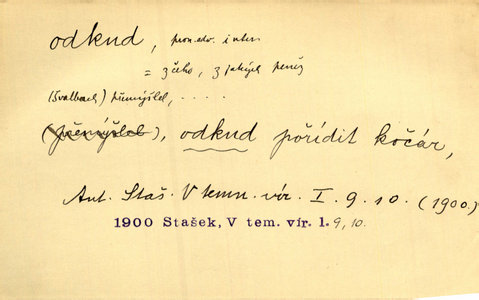 odkud, pron. adv. inter.
= z čeho, z jakých peněz
(Švalbach) přemýšlel, . . . .
(přemýšlel), odkud pořídit kočár,
Ant. Staš. V temn. vír. I. 9. 10. (1900.)
1900 Stašek, V tem. vír. 1. 9, 10.